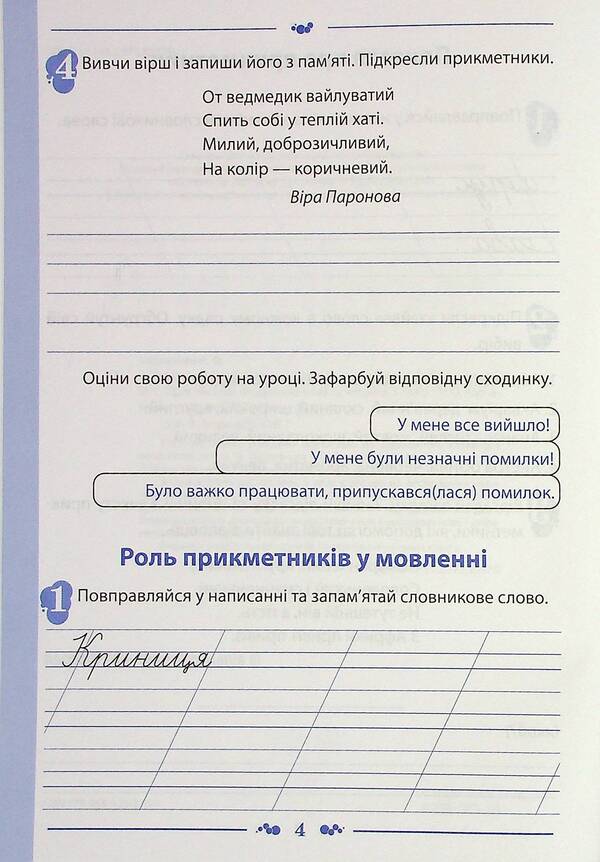 4 Вивчи вірш і запиши його з пам’яті. Підкресли прикметники.
От ведмедик вайлуватий
Спить собі у теплій хаті.
Милий, доброзичливий,
На колір — коричневий.
Віра Паронова
Оціни свою роботу на уроці. Зафарбуй відповідну сходинку.
У мене все вийшло!
У мене були незначні помилки!
Було важко працювати, припускався(лася) помилок.
Роль прикметників у мовленні
1 Повправляйся у написанні та запам’ятай словникове слово.
Криниця
4